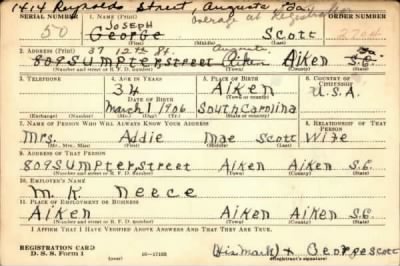 1414 Reynolds Street, Augusta Ga.
SERIAL NUMBER 1. NAME (Print) overage at Registration
JOSEPH
50 George Scott 2704
(First) (Middle) (Last)
2. ADDRESS (Print) 37 12th St. Augusta, Ga.
809 Sumpter street Aiken Aiken S.C.
(Number and street or R. F. D. number) (Town) (County) (State)
3. TELEPHONE 4. AGE IN YEARS 5. PLACE OF BIRTH 6. COUNTRY OF CITIZENSHIP
34 Aiken U.S.A.
DATE OF BIRTH (Town or county)
March 1 1906 South Carolina
(Exchange) (Number) (Mo.) (Day) (Yr.) (State or country)
7. NAME OF PERSON WHO WILL ALWAYS KNOW YOUR ADDRESS 8. RELATIONSHIP OF THAT PERSON
Mrs. Addie Mae Scott Wife
(Mr., Mrs., Miss) (First) (Middle) (Last)
9. ADDRESS OF THAT PERSON
809 Sumpter street Aiken Aiken S.C.
(Number and street or R. F. D. number) (Town) (County) (State)
10. EMPLOYER'S NAME
M. K. Neece
11. PLACE OF EMPLOYMENT OR BUSINESS
Aiken Aiken Aiken S.C.
(Number and street or R. F. D. number) (Town) (County) (State)
I AFFIRM THAT I HAVE VERIFIED ABOVE ANSWERS AND THAT THEY ARE TRUE.
REGISTRATION CARD
D. S. S. FORM 1 (His mark) x George Scott
(Registrant's signature)